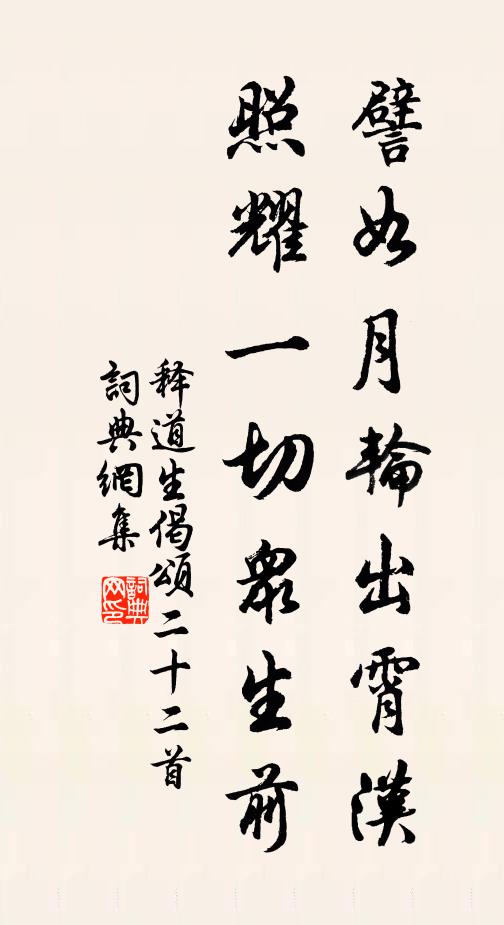 譬如月輪出霄漢
照耀一切衆生前
释道生偈頌二十二首
詞典網集
詞典网印